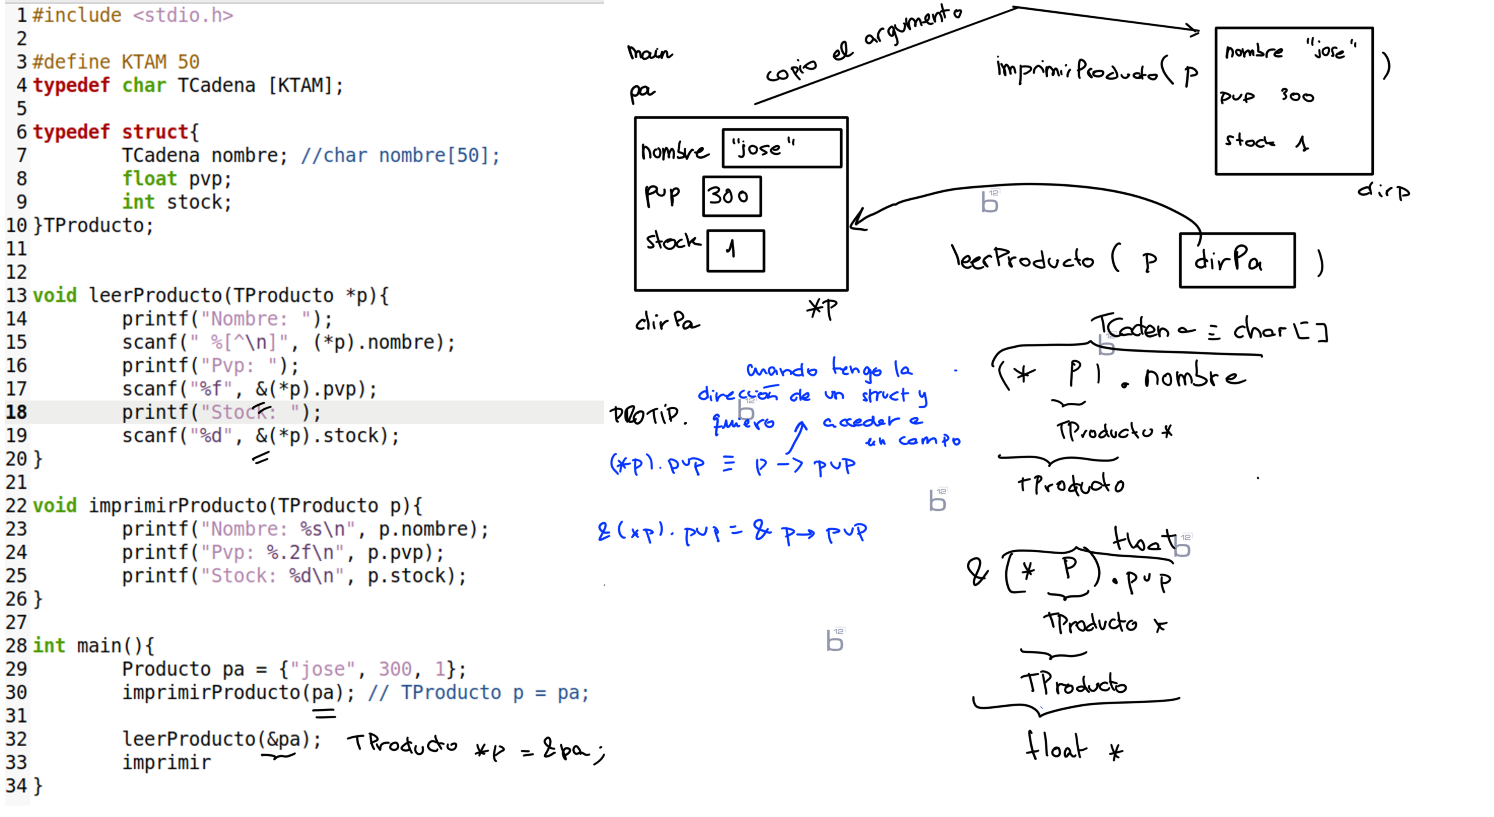 1 #include <stdio.h>
2
3 #define KTAM 50
4 typedef char TCadena [KTAM];
5
6 typedef struct{
7 TCadena nombre; //char nombre[50];
8 float pvp;
9 int stock;
10 }TProducto;
11
12
13 void leerProducto(TProducto *p){
14 printf("Nombre: ");
15 scanf(" %[^\n]", (*p).nombre);
16 printf("Pvp: ");
17 scanf("%f", &(*p).pvp);
18 printf("Stock: ");
19 scanf("%d", &(*p).stock);
20 }
21
22 void imprimirProducto(TProducto p){
23 printf("Nombre: %s\n", p.nombre);
24 printf("Pvp: %.2f\n", p.pvp);
25 printf("Stock: %d\n", p.stock);
26 }
27
28 int main(){
29 Producto pa = {"jose", 300, 1};
30 imprimirProducto(pa); // TProducto p = pa;
31
32 leerProducto(&pa); TProducto *p = &pa;
33 imprimir
34 }
main
pa
nombre "jose"
pvp 300
stock 1
dirPa *p
copio el argumento
imprimirProducto( p
nombre "jose"
pvp 300
stock 1
)
dirp
leerProducto ( p dirPa )
PROTIP.
cuando tengo la
dirección de un struct y
quiero acceder a
un campo
(*p).pvp ≡ p -> pvp
&(*p).pvp = & p-> pvp
TCadena ≡ char[]
(* p).nombre
TProducto *
TProducto
float
& (* p).pvp
TProducto *
TProducto
float *
b12
b12
b12
b12
b12
b12